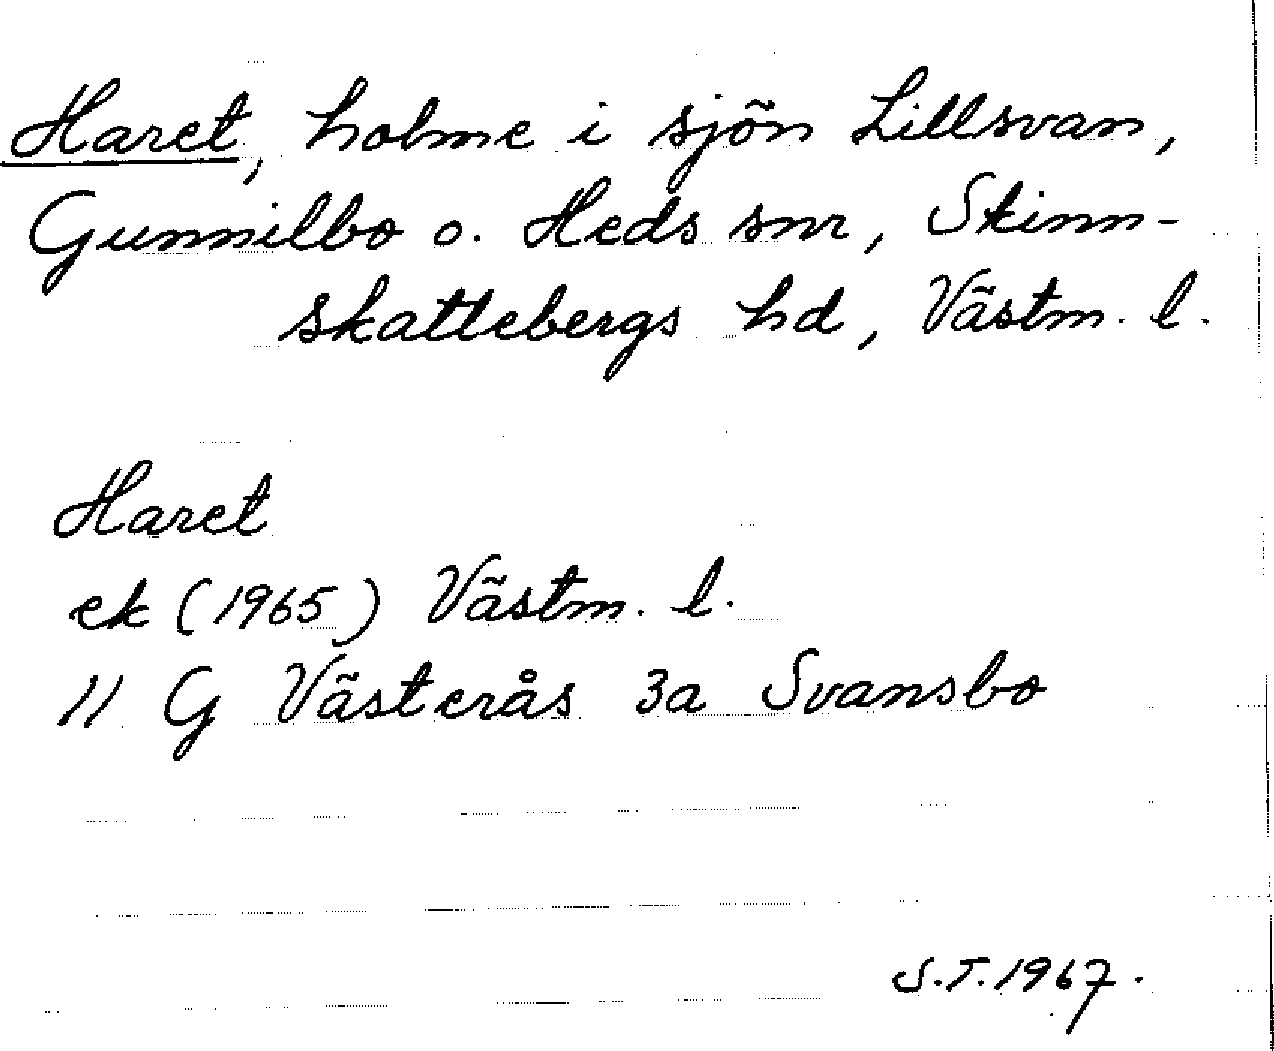 Haret, holme i sjön Lillsvan,
Gunnilbo o. Heds snr, Skinn-
skattebergs hd, Västm. l.
Haret
ek (1965) Västm. l.
11 G Västerås 3a Svansbo
S.T. 1967.